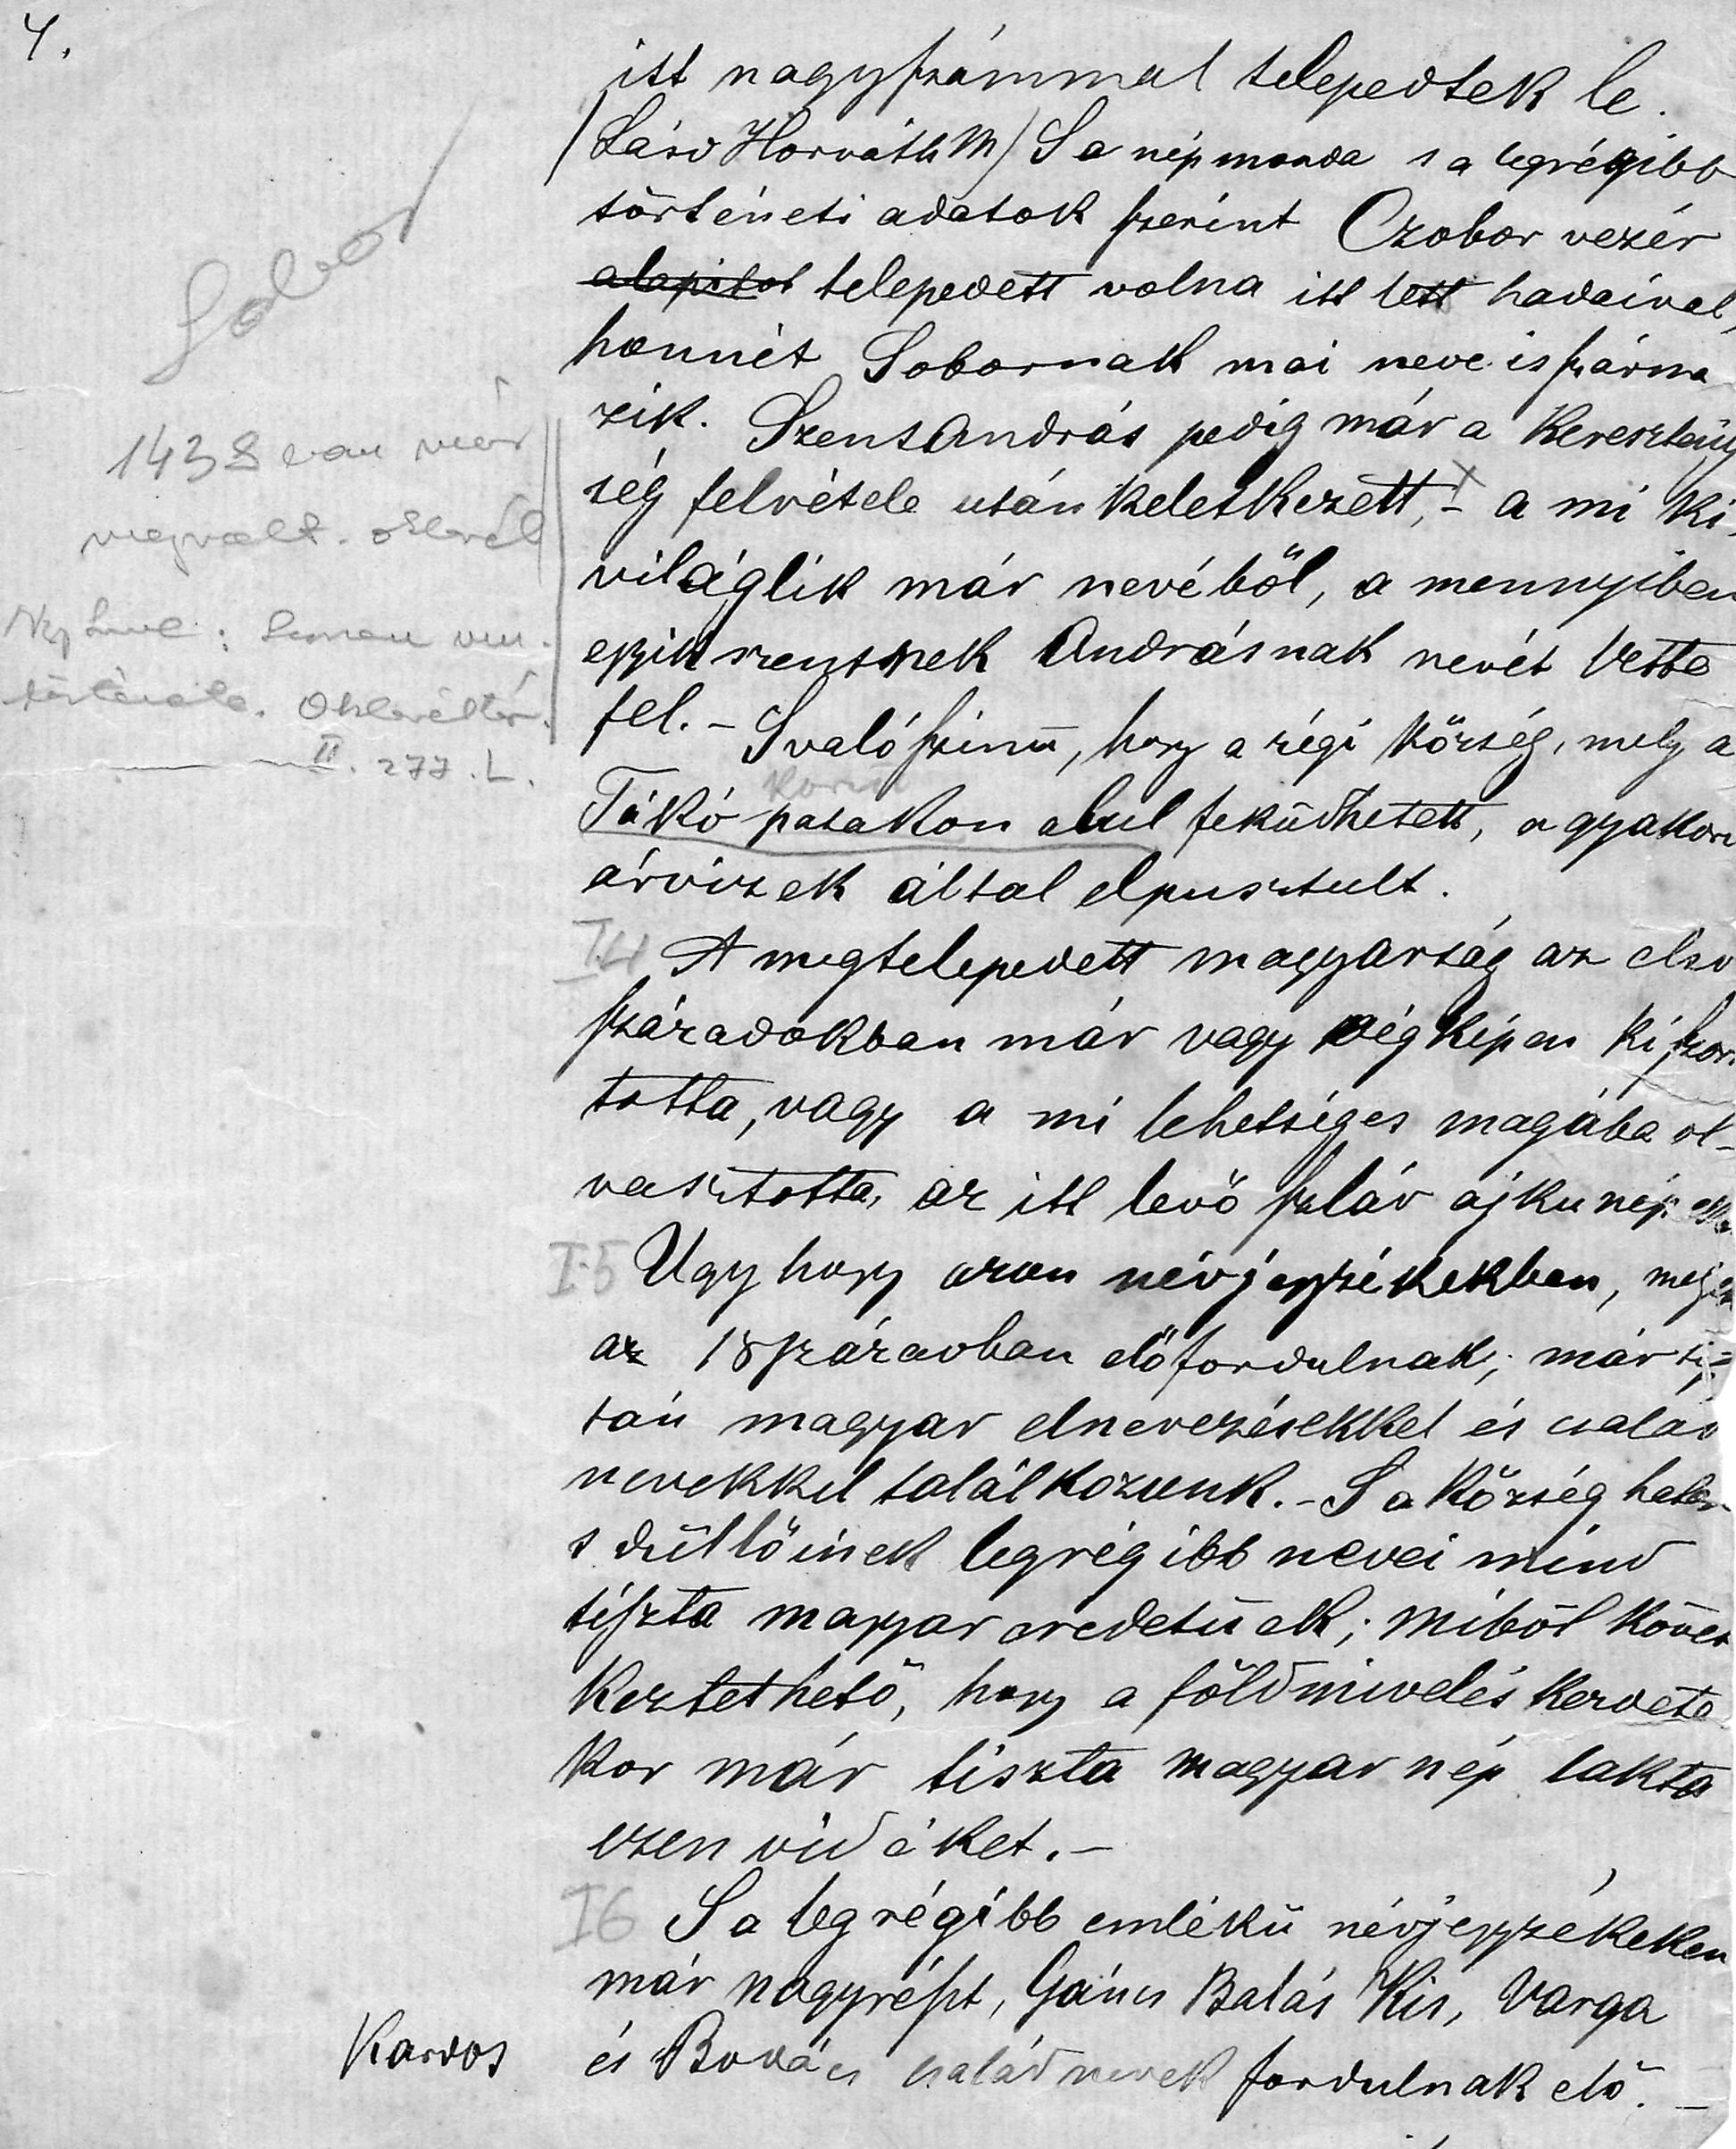 4.
itt nagyszámmal telepedtek le.
(Lásd Horváth M) S a népmonda s a legrégibb
történeti adatok szerint Czobor vezér
alapitot telepedett volna itt lett hadaival,
honnét Sobornak mai neve is szárma
zik. Szent András pedig már a Keresztény
ség felvétele után keletkezett, - a mi ki
világlik már nevéből, a mennyiben
egyik szentnek Andrásnak nevét vette
fel. - S valószinü, hogy a régi Község, mely a
Tákó patakon alul feküdhetett, a gyakori
árvizek által elpusztult.
I.4 A megtelepedett magyarság az első
századokban már vagy végképen kiszor
totta, vagy a mi lehetséges magába ol-
vasztotta, az itt levő szláv ajku nép
I.5 Ugy hogy azon névjegyzékekben, mely
az 18 században előfordulnak, már tisz
tán magyar elnevezésekkel és család
nevekkel találkozunk. - S a Község határ
s düllőinek legrégibb nevei mind
tiszta magyar eredetüek; miből követ
keztethető, hogy a földmivelés kezdete
kor már tiszta magyar nép lakta
ezen vidéket. -
I6 S a legrégibb emlékü névjegyzékeken
már nagyrészt, Gáncs Balás Kis, Varga
és Kovács családnevek fordulnak elő. -
Sobor
1438 ban már
megvolt. oklevél
története. Oklevéltár.
II. 277. L.
Kardos